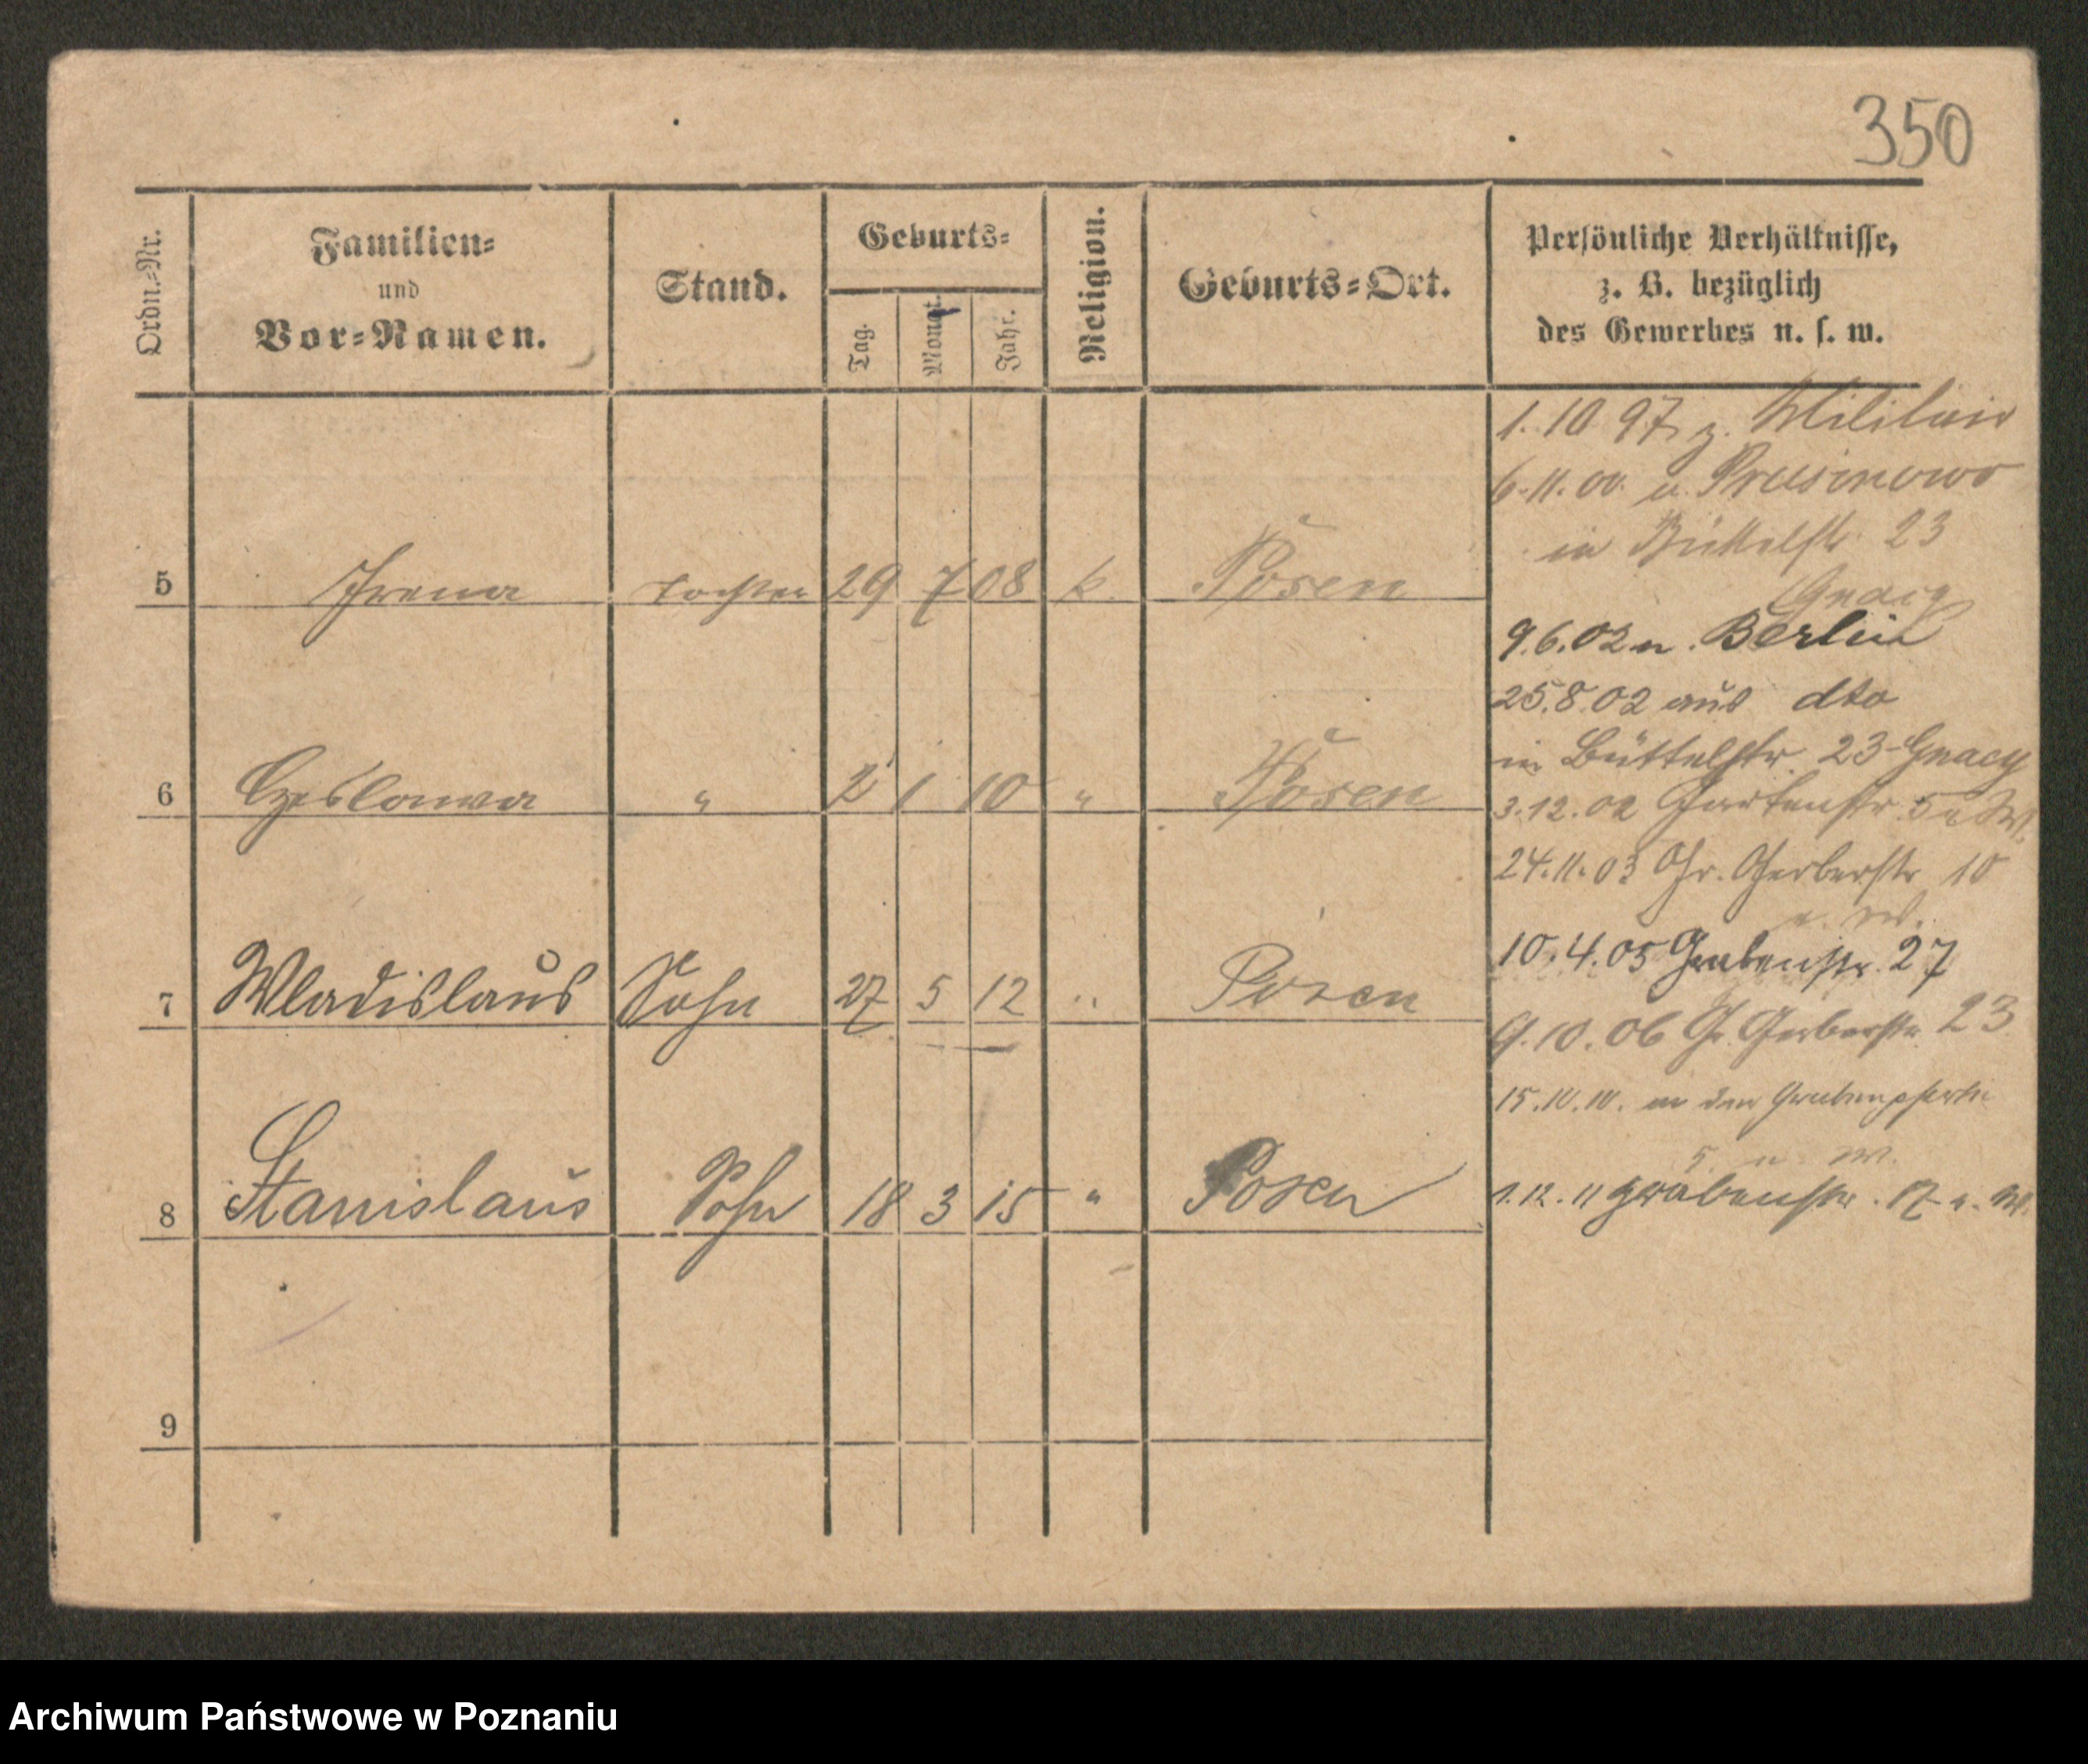 350
Ordn.=Nr.
Familien=
und
Vor=Namen.
Stand.
Geburts=
Tag.
Monat.
Jahr.
Religion.
Geburts=Ort.
Persönliche Verhältnisse,
z. B. bezüglich
des Gewerbes u. s. w.
5 Irena Tochter 29 7 08 k. Posen
6 Czeslawa " 2 1 10 " Posen
7 Wladislaus Sohn 27 5 12 " Posen
8 Stanislaus Sohn 18 3 15 " Posen
9
1.10 97 z. Militair
6.11.00. a. Prusinowo
in Büttelstr. 23
Gnacy
9.6.02 n. Berlin
25.8.02 aus dto
in Büttelstr. 23 Gnacy
3.12.02 Gartenstr. 5 a. W.
24.11.03 Gr. Gerberstr 10
a. W.
10.4.05 Grabenstr. 27
9.10.06 Gr. Gerberstr. 23
15.10.10. an der
5 a. W.
1.12.11 Grabenstr. 17 a. W.
Archiwum Państwowe w Poznaniu